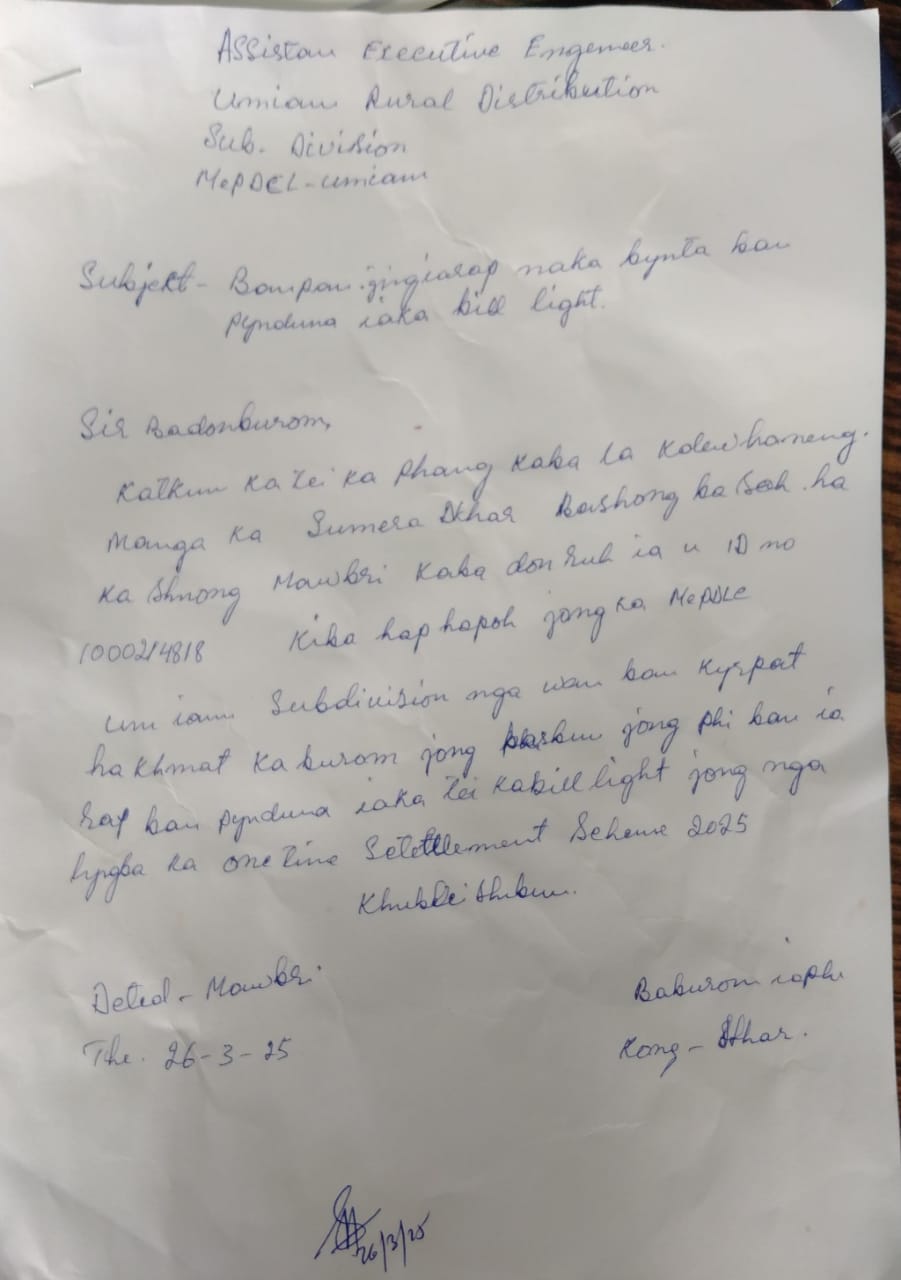 Assistan Executive Engeneer.
Umiam Rural Distribution
Sub. Division
MePDCL-Umiam
Subjekt- Banpan jingiarap naka bynta ban
pynduna iaka bill light.
Sir Badonburom,
Katkum ka tei ka phang kaba la kdew haneng.
Manga ka Sumera Dkhar Bashong basah ha
ka Shnong Mawbri kaba don ruh ia u ID no
1000214818 kiba hap hapoh jong ka MePDLC
Umiam Subdivision nga wan ban kyrpat
ha khmat ka burom jong jong phi ban ia
rap ban pynduna iaka tei ka bill light jong nga
lyngba ka one time Setettlement Scheme 2025
Khublei Shibun.
Deted - Mawbri.
The. 26-3-25
Baburom iaphi
Kong -
26/3/25